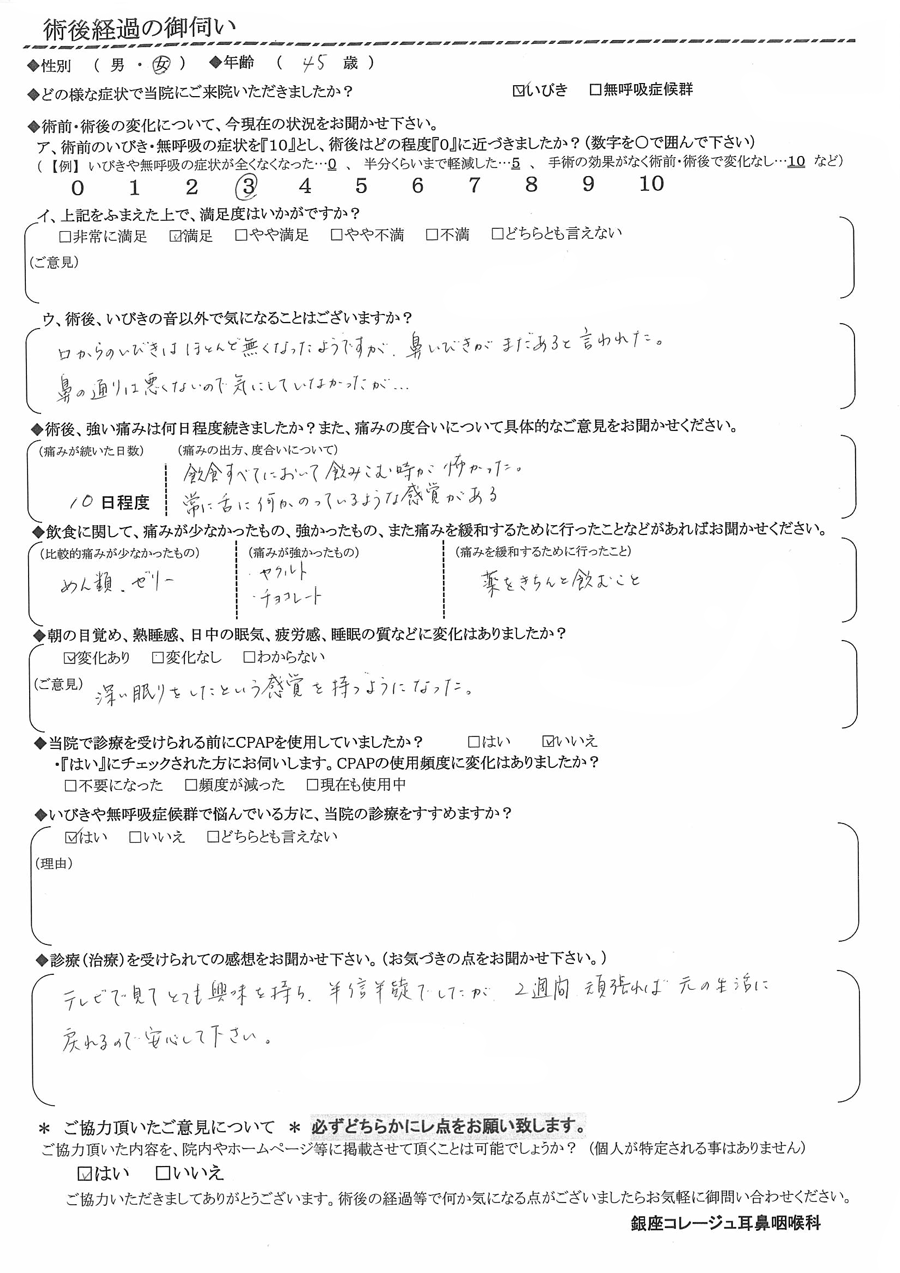 術後経過の御伺い
◆性別 （ 男 ・ 女 ） ◆年齢 （ 45 歳 ）
◆どの様な症状で当院にご来院いただきましたか？ ☑いびき □無呼吸症候群
◆術前・術後の変化について、今現在の状況をお聞かせ下さい。
ア、術前のいびき・無呼吸の症状を『10』とし、術後はどの程度『0』に近づきましたか？（数字を〇で囲んで下さい）
（【例】 いびきや無呼吸の症状が全くなくなった…0 、 半分くらいまで軽減した…5 、 手術の効果がなく術前・術後で変化なし…10 など）
0 1 2 3 4 5 6 7 8 9 10
イ、上記をふまえた上で、満足度はいかがですか？
□非常に満足 ☑満足 □やや満足 □やや不満 □不満 □どちらとも言えない
（ご意見）
ウ、術後、いびきの音以外で気になることはございますか？
口からのいびきはほとんど無くなったようですが、鼻いびきがまだあると言われた。
鼻の通りは悪くないので気にしていなかったが…
◆術後、強い痛みは何日程度続きましたか？また、痛みの度合いについて具体的なご意見をお聞かせください。
（痛みが続いた日数） （痛みの出方、度合いについて）
飲食すべてにおいて飲みこむ時が怖かった。
10 日程度 常に舌に何かのっているような感覚がある
◆飲食に関して、痛みが少なかったもの、強かったもの、また痛みを緩和するために行ったことなどがあればお聞かせください。
（比較的痛みが少なかったもの） （痛みが強かったもの） （痛みを緩和するために行ったこと）
めん類、ゼリー ・ヤクルト 薬をきちんと飲むこと
・チョコレート
◆朝の目覚め、熟睡感、日中の眠気、疲労感、睡眠の質などに変化はありましたか？
☑変化あり □変化なし □わからない
（ご意見） 深い眠りをしたという感覚を持つようになった。
◆当院で診療を受けられる前にCPAPを使用していましたか？ □はい ☑いいえ
・『はい』にチェックされた方にお伺いします。CPAPの使用頻度に変化はありましたか？
□不要になった □頻度が減った □現在も使用中
◆いびきや無呼吸症候群で悩んでいる方に、当院の診療をすすめますか？
☑はい □いいえ □どちらとも言えない
（理由）
◆診療（治療）を受けられての感想をお聞かせ下さい。（お気づきの点をお聞かせ下さい。）
テレビで見てとても興味を持ち、半信半疑でしたが、2週間頑張れば元の生活に
戻れるので安心して下さい。
＊ ご協力頂いたご意見について ＊ 必ずどちらかにレ点をお願い致します。
ご協力頂いた内容を、院内やホームページ等に掲載させて頂くことは可能でしょうか？（個人が特定される事はありません）
☑はい □いいえ
ご協力いただきましてありがとうございます。術後の経過等で何か気になる点がございましたらお気軽に御問い合わせください。
銀座コレージュ耳鼻咽喉科